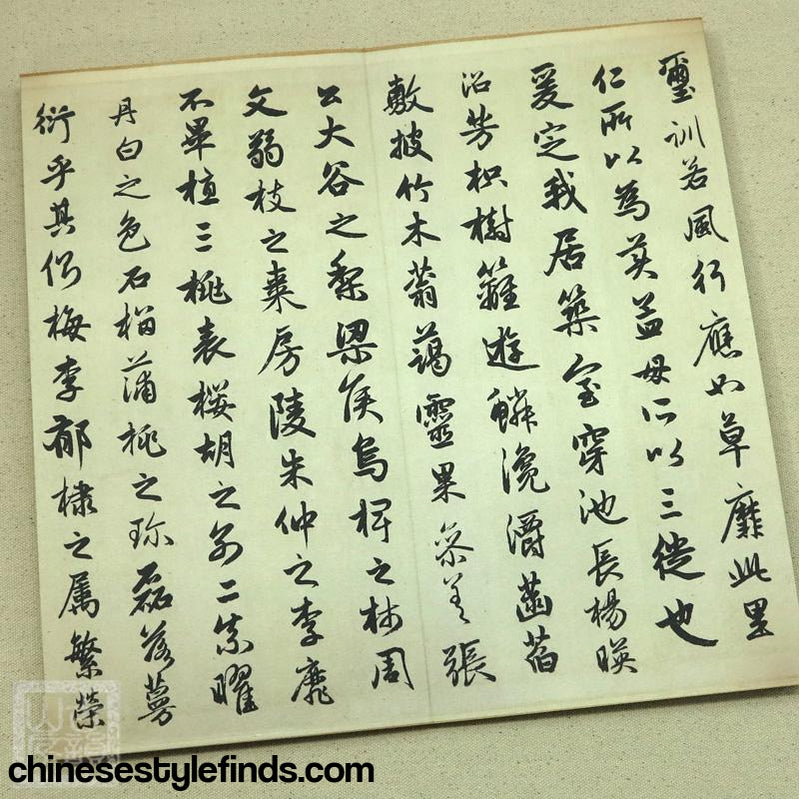 璽訓若風行應如草靡此里
仁所以為美孟母所以三徙也
爰定我居築室穿池長楊暎
沼芳枳樹籬遊鱗瀺灂菡萏
敷披竹木蓊藹靈果參差張
公大谷之梨梁侯烏椑之柿周
文弱枝之棗房陵朱仲之李靡
不畢植三桃表櫻胡之別二柰曜
丹白之色石榴蒲桃之珍磊落蔓
衍乎其側梅李郁棣之属繁榮
chinesestylefinds.com